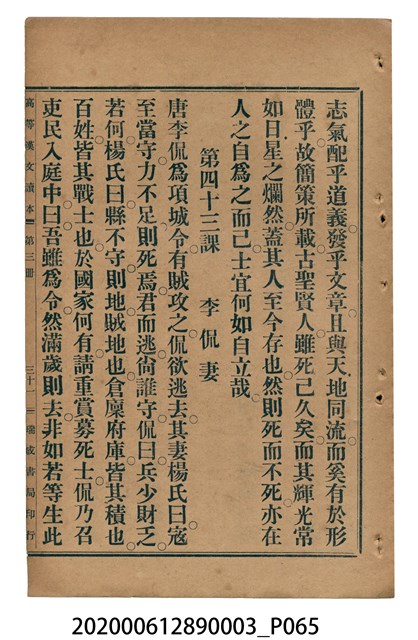 志氣配乎道義發乎文章且與天地同流而奚有於形
體乎故簡策所載古聖賢人雖死已久矣而其輝光常
如日星之爛然蓋其人至今存也然則死而不死亦在
人之自爲之而已士宜何如自立哉
第四十三課　李侃妻
唐李侃爲項城令有賊攻之侃欲逃去其妻楊氏曰寇
至當守力不足則死焉君而逃尙誰守侃曰兵少財乏
若何楊氏曰縣不守則地賊地也倉廩府庫皆其積也
百姓皆其戰士也於國家何有請重賞募死士侃乃召
吏民入庭中曰吾雖爲令然滿歲則去非如若等生此
高等漢文讀本　第三冊　三十一　瑞成書局印行
202000612890003_P065